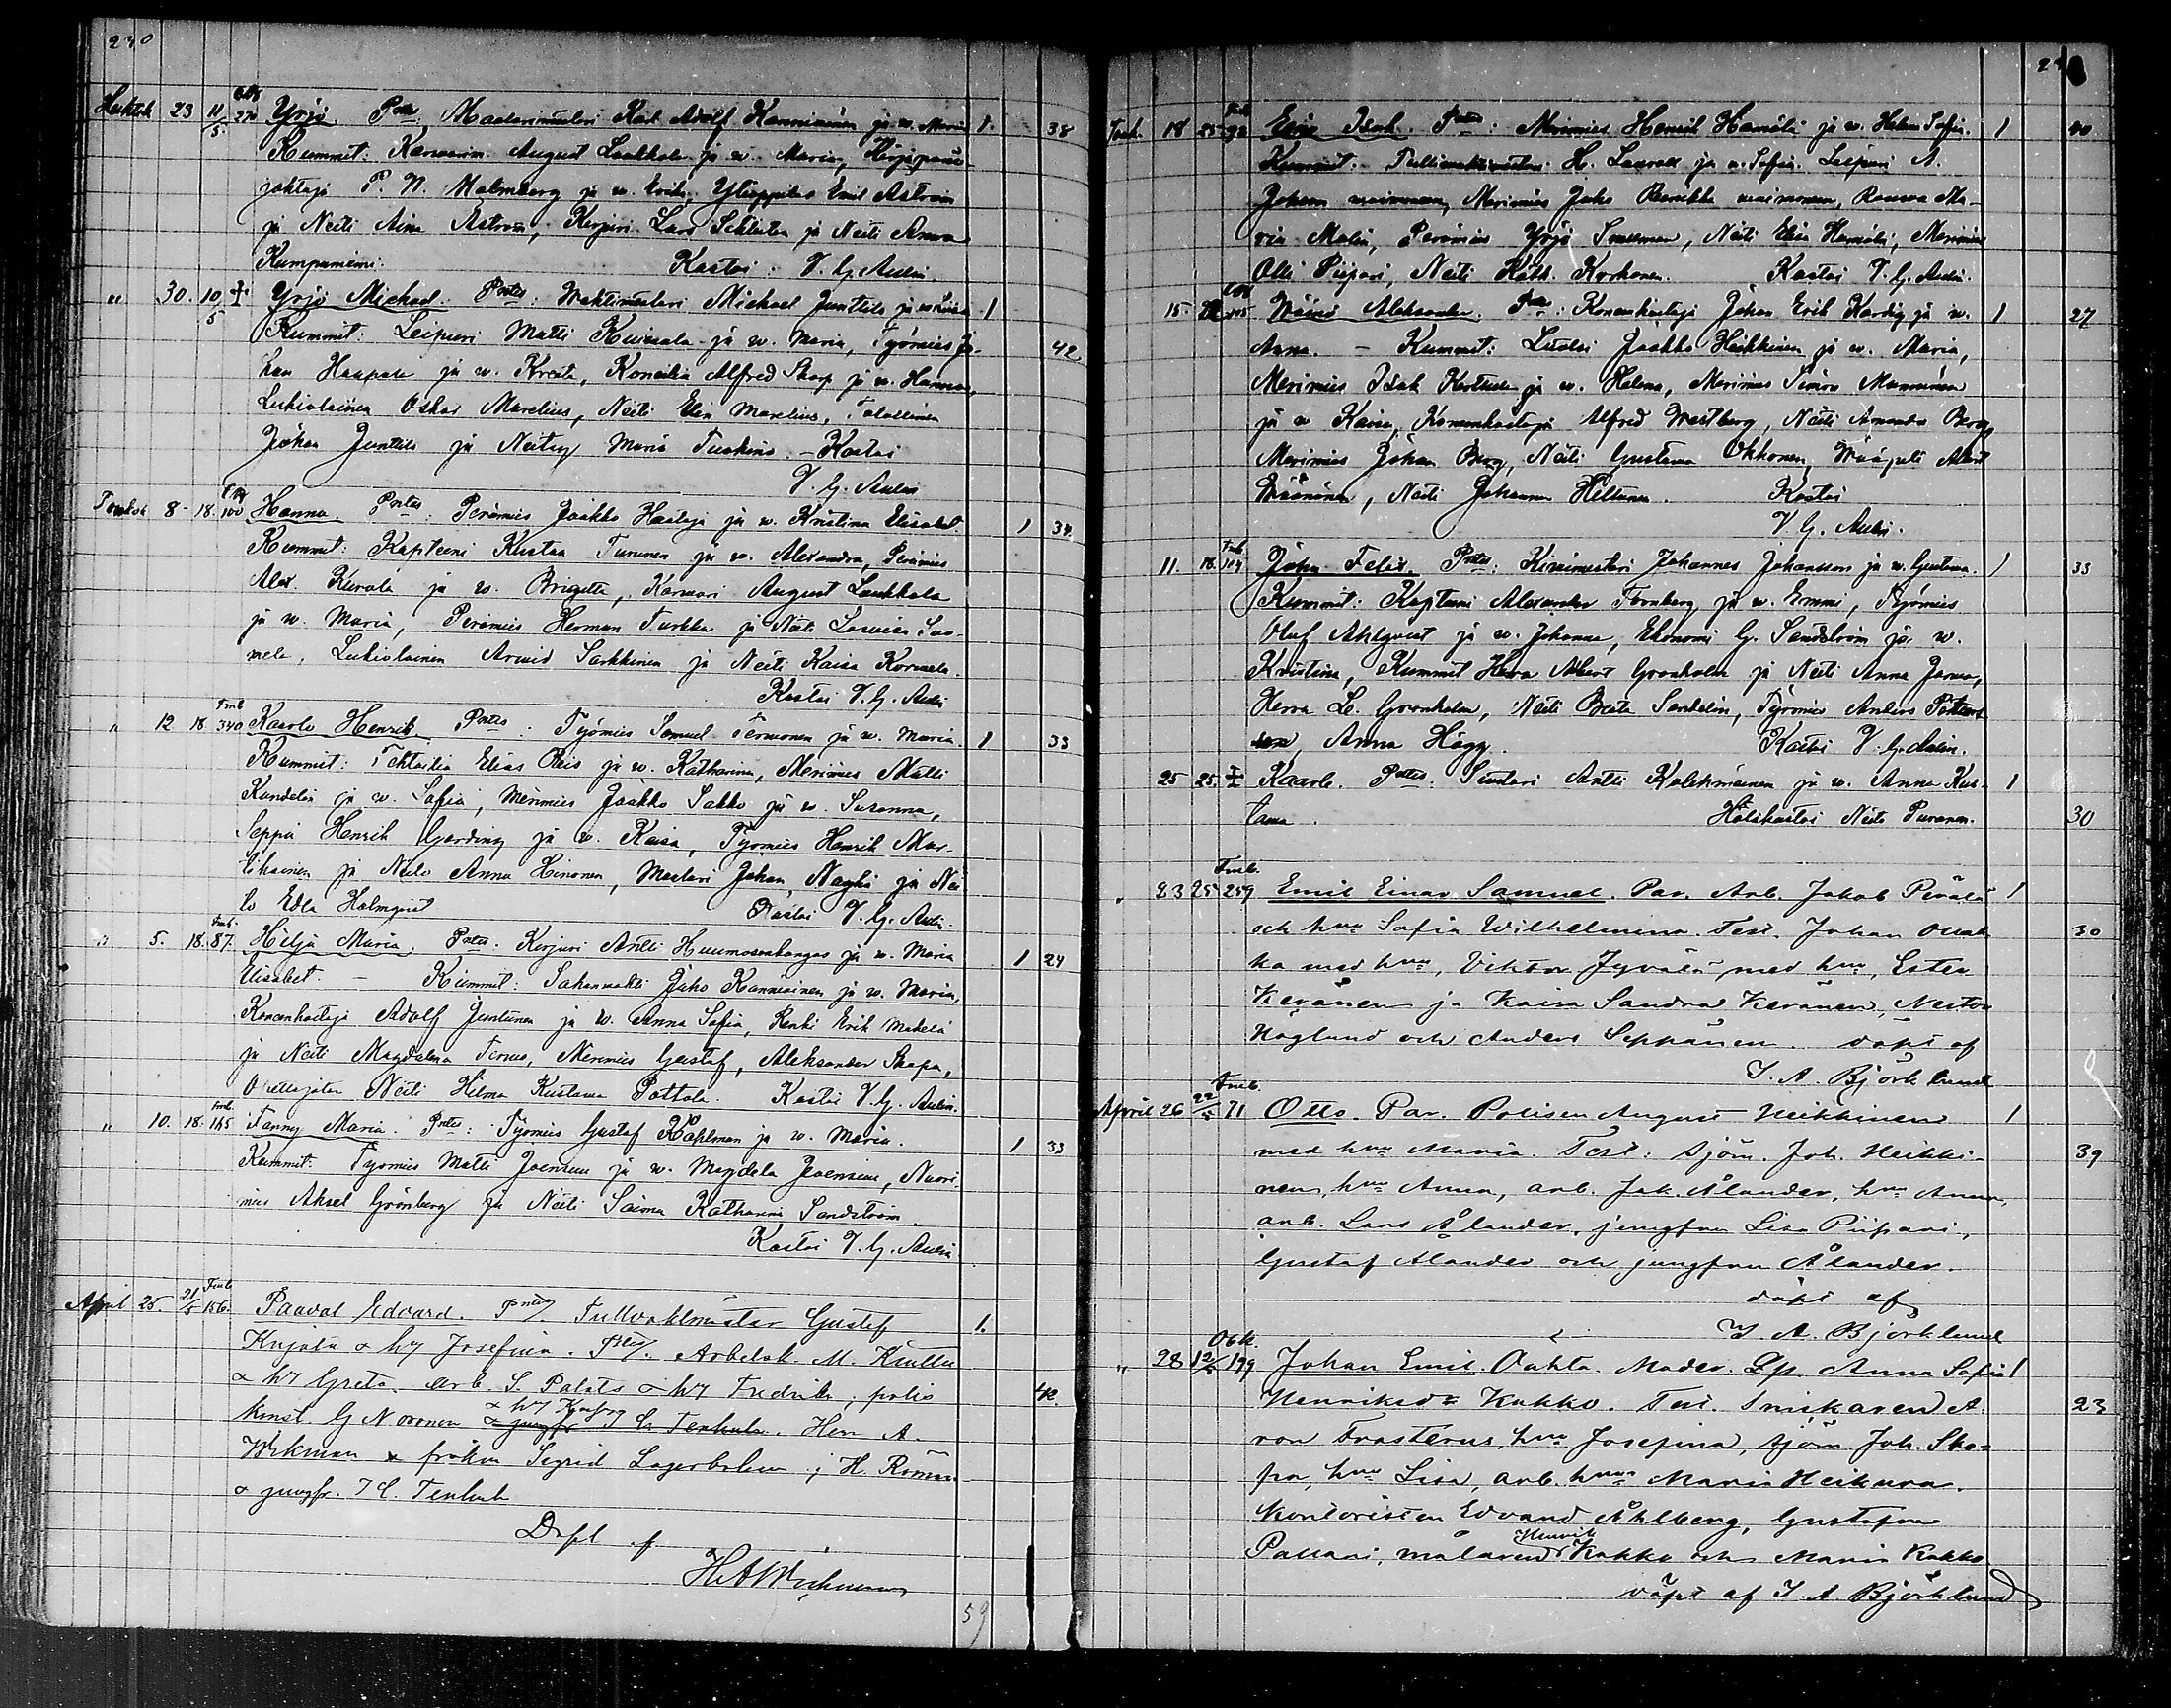 230
Huhtik 23 11/5 270 Yrjö. Prtes. Maalarimestari Karl Adolf Kanniainen ja w. Maria 1. 38
Kummit: Karwarin August Laukkala ja w. Maria,
johtaja P. N. Malmberg ja w. Erika, Ylioppilas Emil Aström
ja Neiti Aina Aström, Kirjuri Lars ja Neiti Anna
Kumpumiemi. Kastoi. V. G. Aulin
" 30. 10/5 Yrjö Michael. Prtes: Wahtimestari Michael Junttila ja w Liisa 1
Kummit: Leipuri Matti ja w. Maria, Työmies Jo- 42
han Haapala ja w. Kreeta, Alfred Skarp ja w. Hanna,
Lukiolainen Oskar Marelius, Neiti Elin Marelius, Talollinen
Johan Junttila ja Neitsy Maria Tuskins. - Kastoi
V. G. Aulin
Toukok 8 - 18. 100 Hanna. Prtes: Perämies Jaakko Haataja ja w. Kristina Elisabet. 1 34
Kummit: Kapteeni Kustaa Turunen ja w. Alexandra, Perämies
Alex. Kurola ja w. Brigitta, Karwari August Laukkala
ja w. Maria, Perämies Herman Turkka ja Neiti Lowisa Suo-
mela, Lukiolainen Arwid Sarkkinen ja Neiti Kaisa
Kastoi V. G. Aulin
" 12 18 Fmb 340 Kaarlo Henrik Prtes. Työmies Samuel Termonen ja w. Maria. 1 33
Kummit: Tehtailia Elias ja w. Katharina, Merimies Matti
Kandelin ja w. Sofia, Merimies Jaakko Sakko ja w. Susanna,
Seppä Henrik Gjerding ja w. Kaisa, Työmies Henrik Mar-
tikainen ja Neiti Anna Heinonen, Maalari Johan ja Nei-
ti Edla Holmqvist Kastoi V. G. Aulin.
" 5. 18. Fmb. 87. Hilja Maria. Prtes. Kirjuri Antti Huumosenkangas ja w. Maria 1 24
Elisabet. - Kummit: Sahanwahti Juho Kanniainen ja w. Maria,
Konenhoitaja Adolf Juntunen ja w. Anna Sofia, Renki Erik Makelä
ja Neiti Magdalena Tornus, Merimies Gustaf, Aleksander Skapa,
Opettajatar Neiti Hilma Kustawa Pottala. Kastoi V. G. Aulin.
" 10. 18. Fmb. 165 Fanny Maria. Prtes: Työmies Gustaf Kahlman ja w. Maria. 1 33
Kummit: Työmies Matti Joensuu ja w. Magdela Joensuu, Nuori-
mies Aksel Grönberg ja Neiti Saima Katharina Sandström.
Kastoi V. G. Aulin
April 25. 21/5 Fmb 156. Paaval Edvard. Prtes. Tullvaktmästar Gustaf 1.
Kujala & h Josefina. Arbetsk. M.
& h Greta. arb. S. Palats & h Fredrika, polis 42.
konst. G Noronen Herr A.
Wikman & fröken Sigrid Lagerbohm, H.
& jungfr. I C. Tenhula
Döpt af
H A Wichmann
59
Touk. 18 25 Fmb 92 Eino Isak. Prtes: Merimies Henrik Hämälä ja w. Helena Sofia. 1 40
Kummit: H. ja w. Sofia. Leipuri A.
Johan waimoneen, Merimies Juho waimoneen, Rouwa Ma-
ria Malin, Perämies Yrjö Snellman, Neiti Elsa Hämälä, Merimies
Olli Piipari, Neiti Kath. Korhonen. Kastoi V. G. Aulin.
15. 22 105 Wäinö Aleksander. Prtes: Konenhoitaja Johan Erik Kardig ja w. 1 27
Anna. - Kummit: Luotsi Jaakko Heikkinen ja w. Maria,
Merimies Isak Karttunen ja w. Helena, Merimies Simon
ja w Kaisa, Konenhoitaja Alfred Westberg, Neiti Amanda Berg,
Merimies Johan Berg, Neiti Gustawa Okkonen, Wääpeli Albert
Wäänänen, Neiti Johanna Hiltunen. Kastoi
V. G. Aulin.
11. 18. Fmb. 104 John Felix. Prtes: Kiwimestari Johannes Johansson ja w. Gustawa. 1 33
Kummit: Kapteeni Alexander Tornberg ja w. Emmi, Työmies
Oluf Ahlqvist ja w. Johanna, Ekonomi G. Sandström ja w.
Kristina, Kummit Herra Albert Gronholm ja Neiti Anna
Herra L. Gronholm, Neiti Beata Sandelin, Työmies Anders
Anna Högg. Kastoi V. G. Aulin.
25 25. Kaarlo. Prtes: Suutari Antti Kolehmainen ja w. Anna Kus- 1
tawa. Hätäkastoi Neiti Puranen. 30
" 23 25 Fmb. 259 Emil Einar Samuel. Par. Arb. Jakob Perälä 1
och hru Sofia Wilhelmina. Test. Johan 30
ka med hru, Viktor Jyvälä med hru, Ester
Keränen ja Kaisa Sandra Keränen, Nestor
Haglund och Anders Seppänen. döpt af
J. A. Björklund
April 26 22/5 Fmb. 71 Otto. Par. Polisen August Heikkinen 1
med hru Maria. Test: sjöm. Joh. Heikki- 39
nen, hru Anna, arb. Jak. Ålander, hru Anna,
arb. Lars Ålander, jungfru Lisa Piipari,
Gustaf Alander och jungfru Ålander.
döpt af
J. A. Björklund
" 28 12/5 Obk. 199 Johan Emil. Oakta. Moder: Lp. Anna Sofia 1
Henriksdr Kakko. Test. Snickaren A. 23
ron Frosterus, hru Josefina, sjöm. Joh. Ska-
pa, hru Lisa, arb. hru Maria Heikura.
Kontoristen Edvard Åhlberg, Gustafva
Pallari, målaren Henrik Kakko och Maria Kakko
döpt af J. A. Björklund